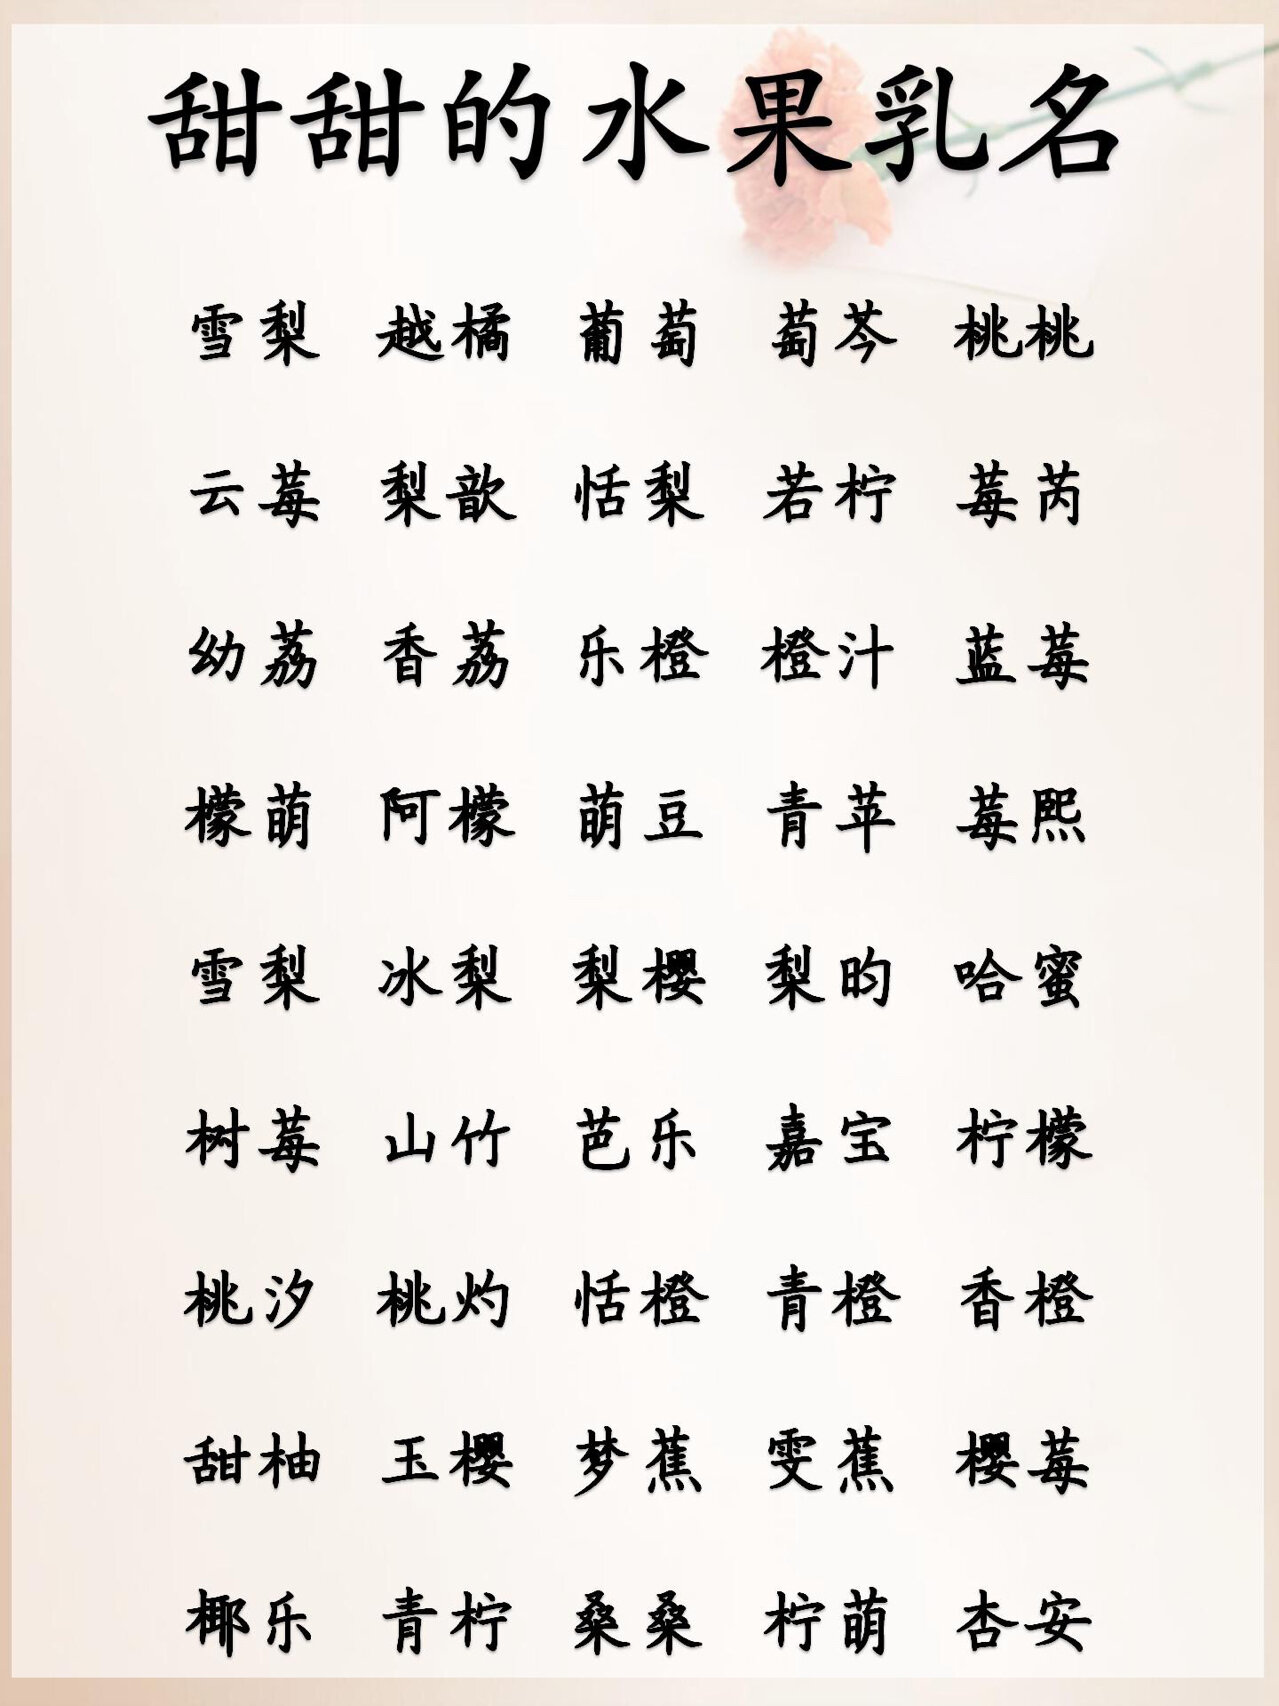 甜甜的水果乳名
雪梨 越橘 葡萄 萄芩 桃桃
云莓 梨歆 恬梨 若柠 莓芮
幼荔 香荔 乐橙 橙汁 蓝莓
檬萌 阿檬 萌豆 青苹 莓熙
雪梨 冰梨 梨樱 梨昀 哈蜜
树莓 山竹 芭乐 嘉宝 柠檬
桃汐 桃灼 恬橙 青橙 香橙
甜柚 玉樱 梦蕉 雯蕉 樱莓
椰乐 青柠 桑桑 柠萌 杏安